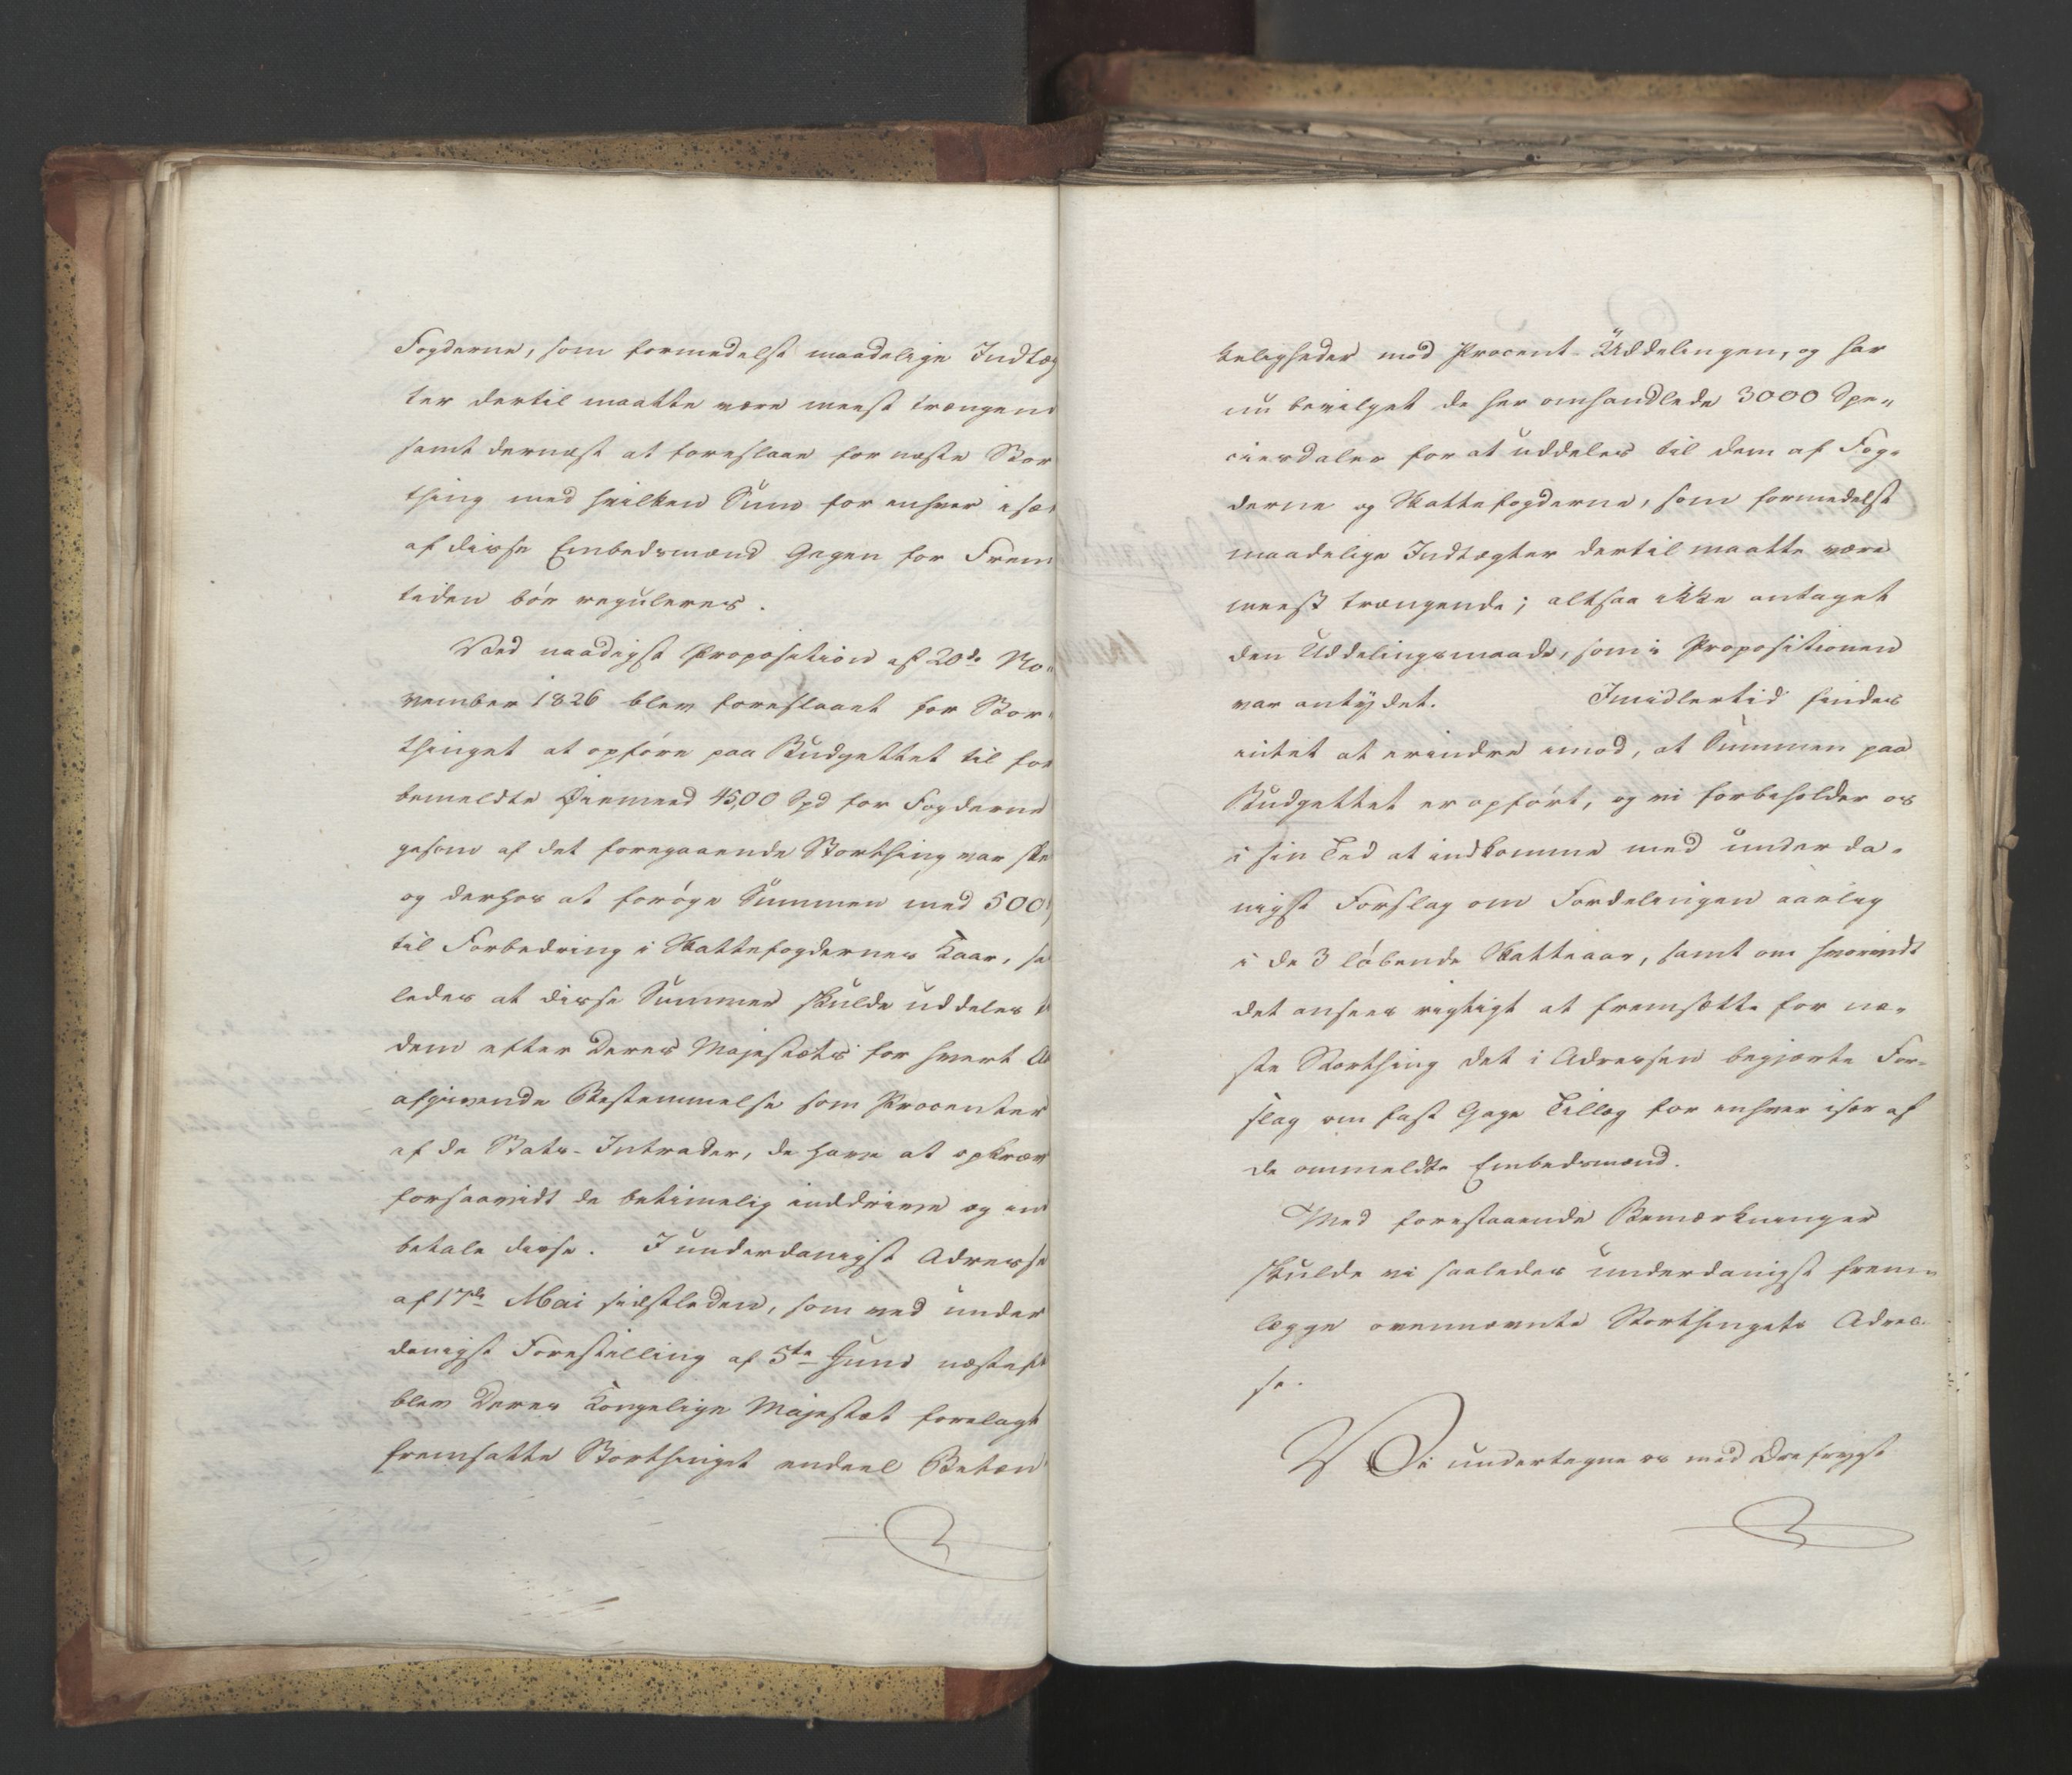 Fogderne, som formedelst maadelige Indtæg
ter dertil maatte være meest trængend
samt dernæst at foreslaae for næste Stor
thing med hvilken Sum for enhver isæ
af disse Embedsmænd Gagen for Frem
tiden bör reguleres.
Ved naadigst Proposition af 20de No„
vember 1826 blev foreslaaet for Stor„
thinget at opföre paa Budgettet til for
bemeldte Øiemeed 4500 Spd for Fogderne
gesom af det foregaaende Storthing var ske
og derhos at foröge Summen med 500
til Forbedring i Skattefogdernes Kaar, sa
ledes at disse Summer skulde uddeles t
dem efter Deres Majestæts for hvert Aa
afgivende Bestemmelse som Procenter
af de Stats-Intrader, de have at opkræv
forsaavidt de betimelig inddrive og ind
betale disse. I underdanigst Adresse
af 17de Mai sidstleden, som ved under
danigst Forestilling af 5te Juni næsteft
blev Deres Kongelige Majestæt forelagt
fremsatte Storthinget endeel Betæn
keligheder mod Procent-Uddelingen, og har
nu bevilget de her omhandlede 3000 Spe„
ciesdaler for at uddeles til dem af Fog„
derne og Skattefogderne, som formedelst
maadelige Indtægter dertil maatte være
meest trængende; altsaa ikke antaget
den Uddelingsmaade, som i Propositionen
var antydet. Imidlertid findes
intet at erindre imod, at Summen paa
Budgettet er opfört, og vi forbeholder os
i sin Tid at indkomme med underda„
nigst Forslag om Fordelingen aarlig
i de 3 löbende Skatteaar, samt om hvorvidt
det ansees rigtigt at fremsætte for næ„
ste Storthing det i Adressen begjærte For„
slag om fast Gage Tillæg for enhver især af
de ommeldte Embedsmænd.
Med forestaaende Bemærkninger
skulde vi saaledes underdanigst frem„
lægge ovennævnte Storthingets Adres„
se.
Vi undertegne os med Ærefrygt